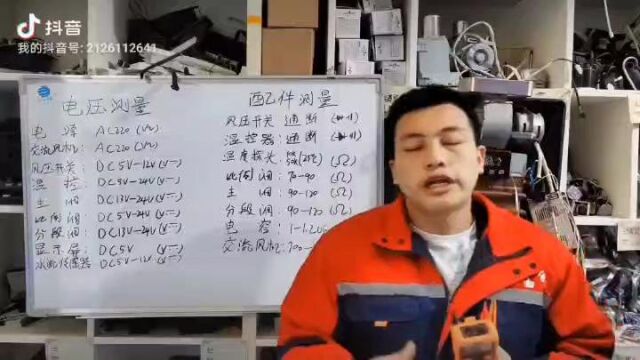 抖音
我的抖音号: 2126112641
电压测量
电源 AC220 (V~)
交流风机: AC220 (V~)
风压开关: DC5V-12V (V⎓)
温控: DC5V-24V (V⎓)
主阀: DC13V-24V (V⎓)
比例阀: DC5V-24V (V⎓)
分段阀: DC13V-24V (V⎓)
显示屏: DC5V (V⎓)
水流传感器 DC5V-12V (V⎓)
配件测量
风压开关: 通断
温控器: 通断
温度探头: (25℃) (Ω)
比例阀: 70-90 (Ω)
主阀: 90-120 (Ω)
分段阀: 90-120 (Ω)
交流风机: